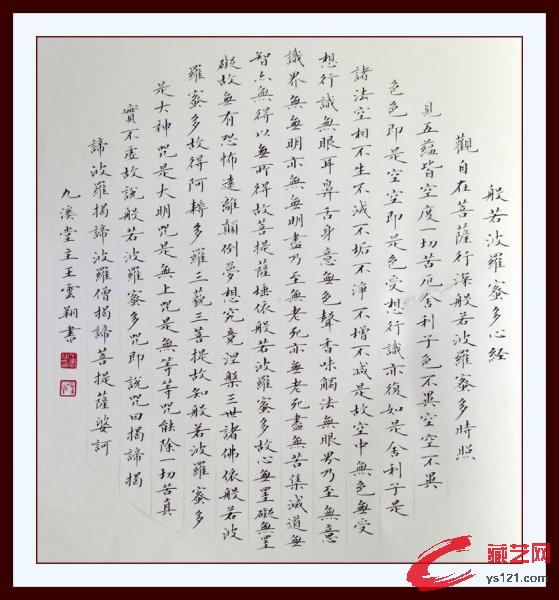 般若波羅蜜多心经
觀自在菩薩行深般若波羅蜜多時照
見五蕴皆空度一切苦厄舍利子色不異空空不異
色色即是空空即是色受想行識亦復如是舍利子是
諸法空相不生不滅不垢不淨不增不減是故空中無色無受
想行識無眼耳鼻舌身意無色聲香味觸法無眼界乃至無意
識界無無明亦無無明盡乃至無老死亦無老死盡無苦集滅道無
智亦無得以無所得故菩提薩埵依般若波羅蜜多故心無罣礙無罣
礙故無有恐怖遠離顛倒夢想究竟涅槃三世諸佛依般若波
羅蜜多故得阿耨多羅三藐三菩提故知般若波羅蜜多
是大神咒是大明咒是無上咒是無等等咒能除一切苦真
實不虛故說般若波羅蜜多咒即說咒曰揭諦揭
諦波羅揭諦波羅僧揭諦菩提薩婆訶
九溪堂主王雲翔書
藏艺网
ys121.com